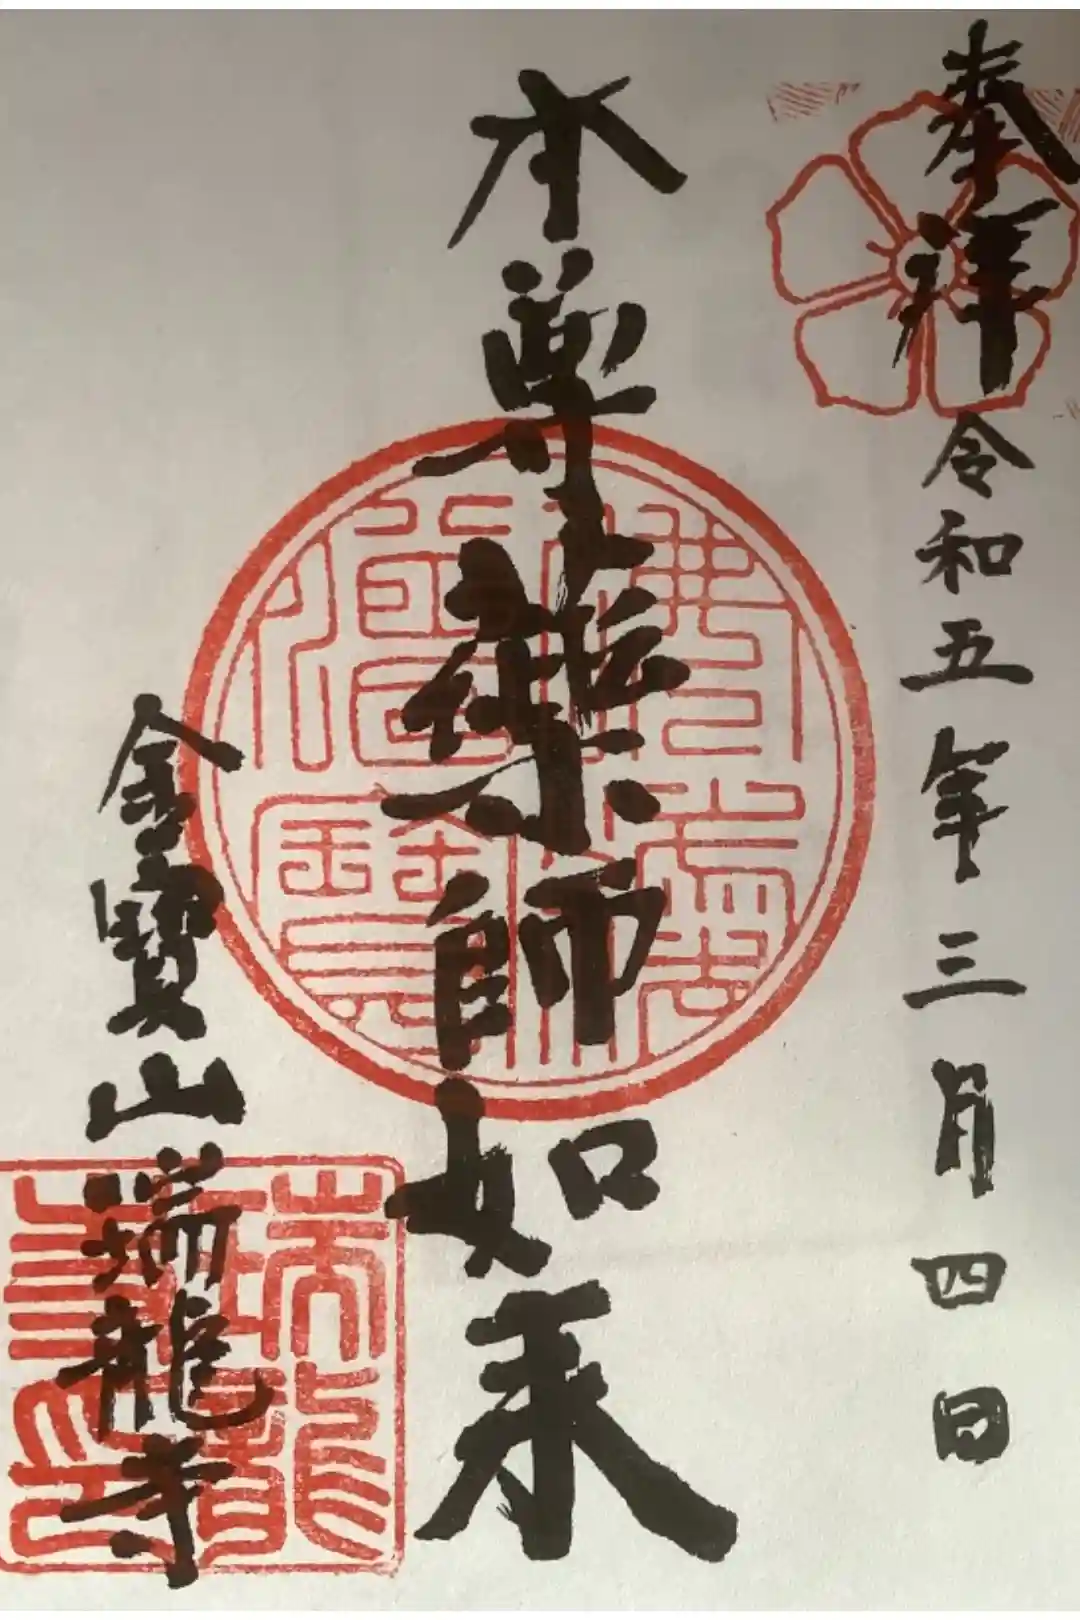 奉拝 令和五年三月四日
本尊薬師如来
金寶山瑞龍寺